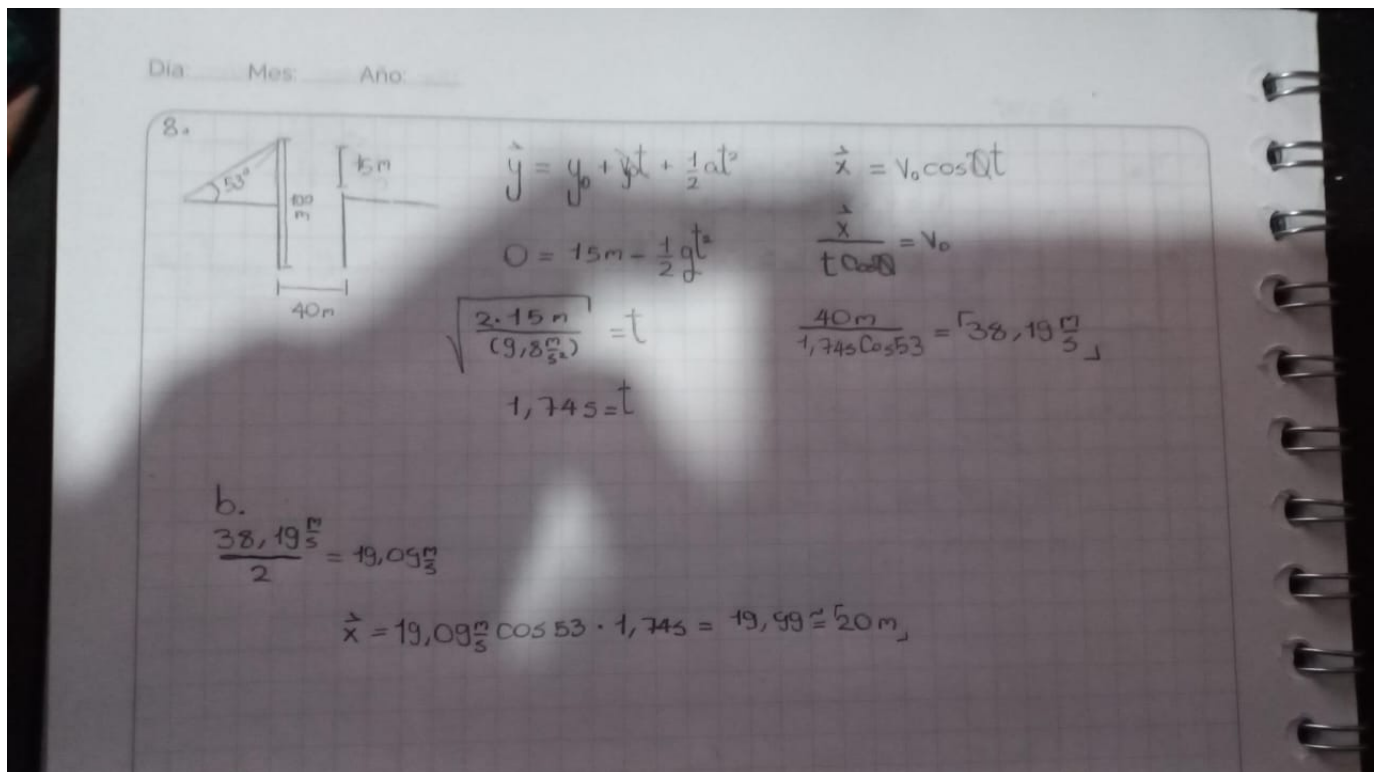 Día: Mes: Año:
8.
53°
100 m
15m
40m
y = y₀ + v₀t + 1/2 at²
0 = 15m - 1/2 gt²
√(2·15m / (9,8 m/s²)) = t
1,74s = t
x = V₀ cosθt
x / (t Cosθ) = V₀
40m / (1,74s Cos53) = 38,19 m/s
b.
38,19 m/s / 2 = 19,09 m/s
x = 19,09 m/s cos 53 · 1,74s = 19,99 ≅ 20m